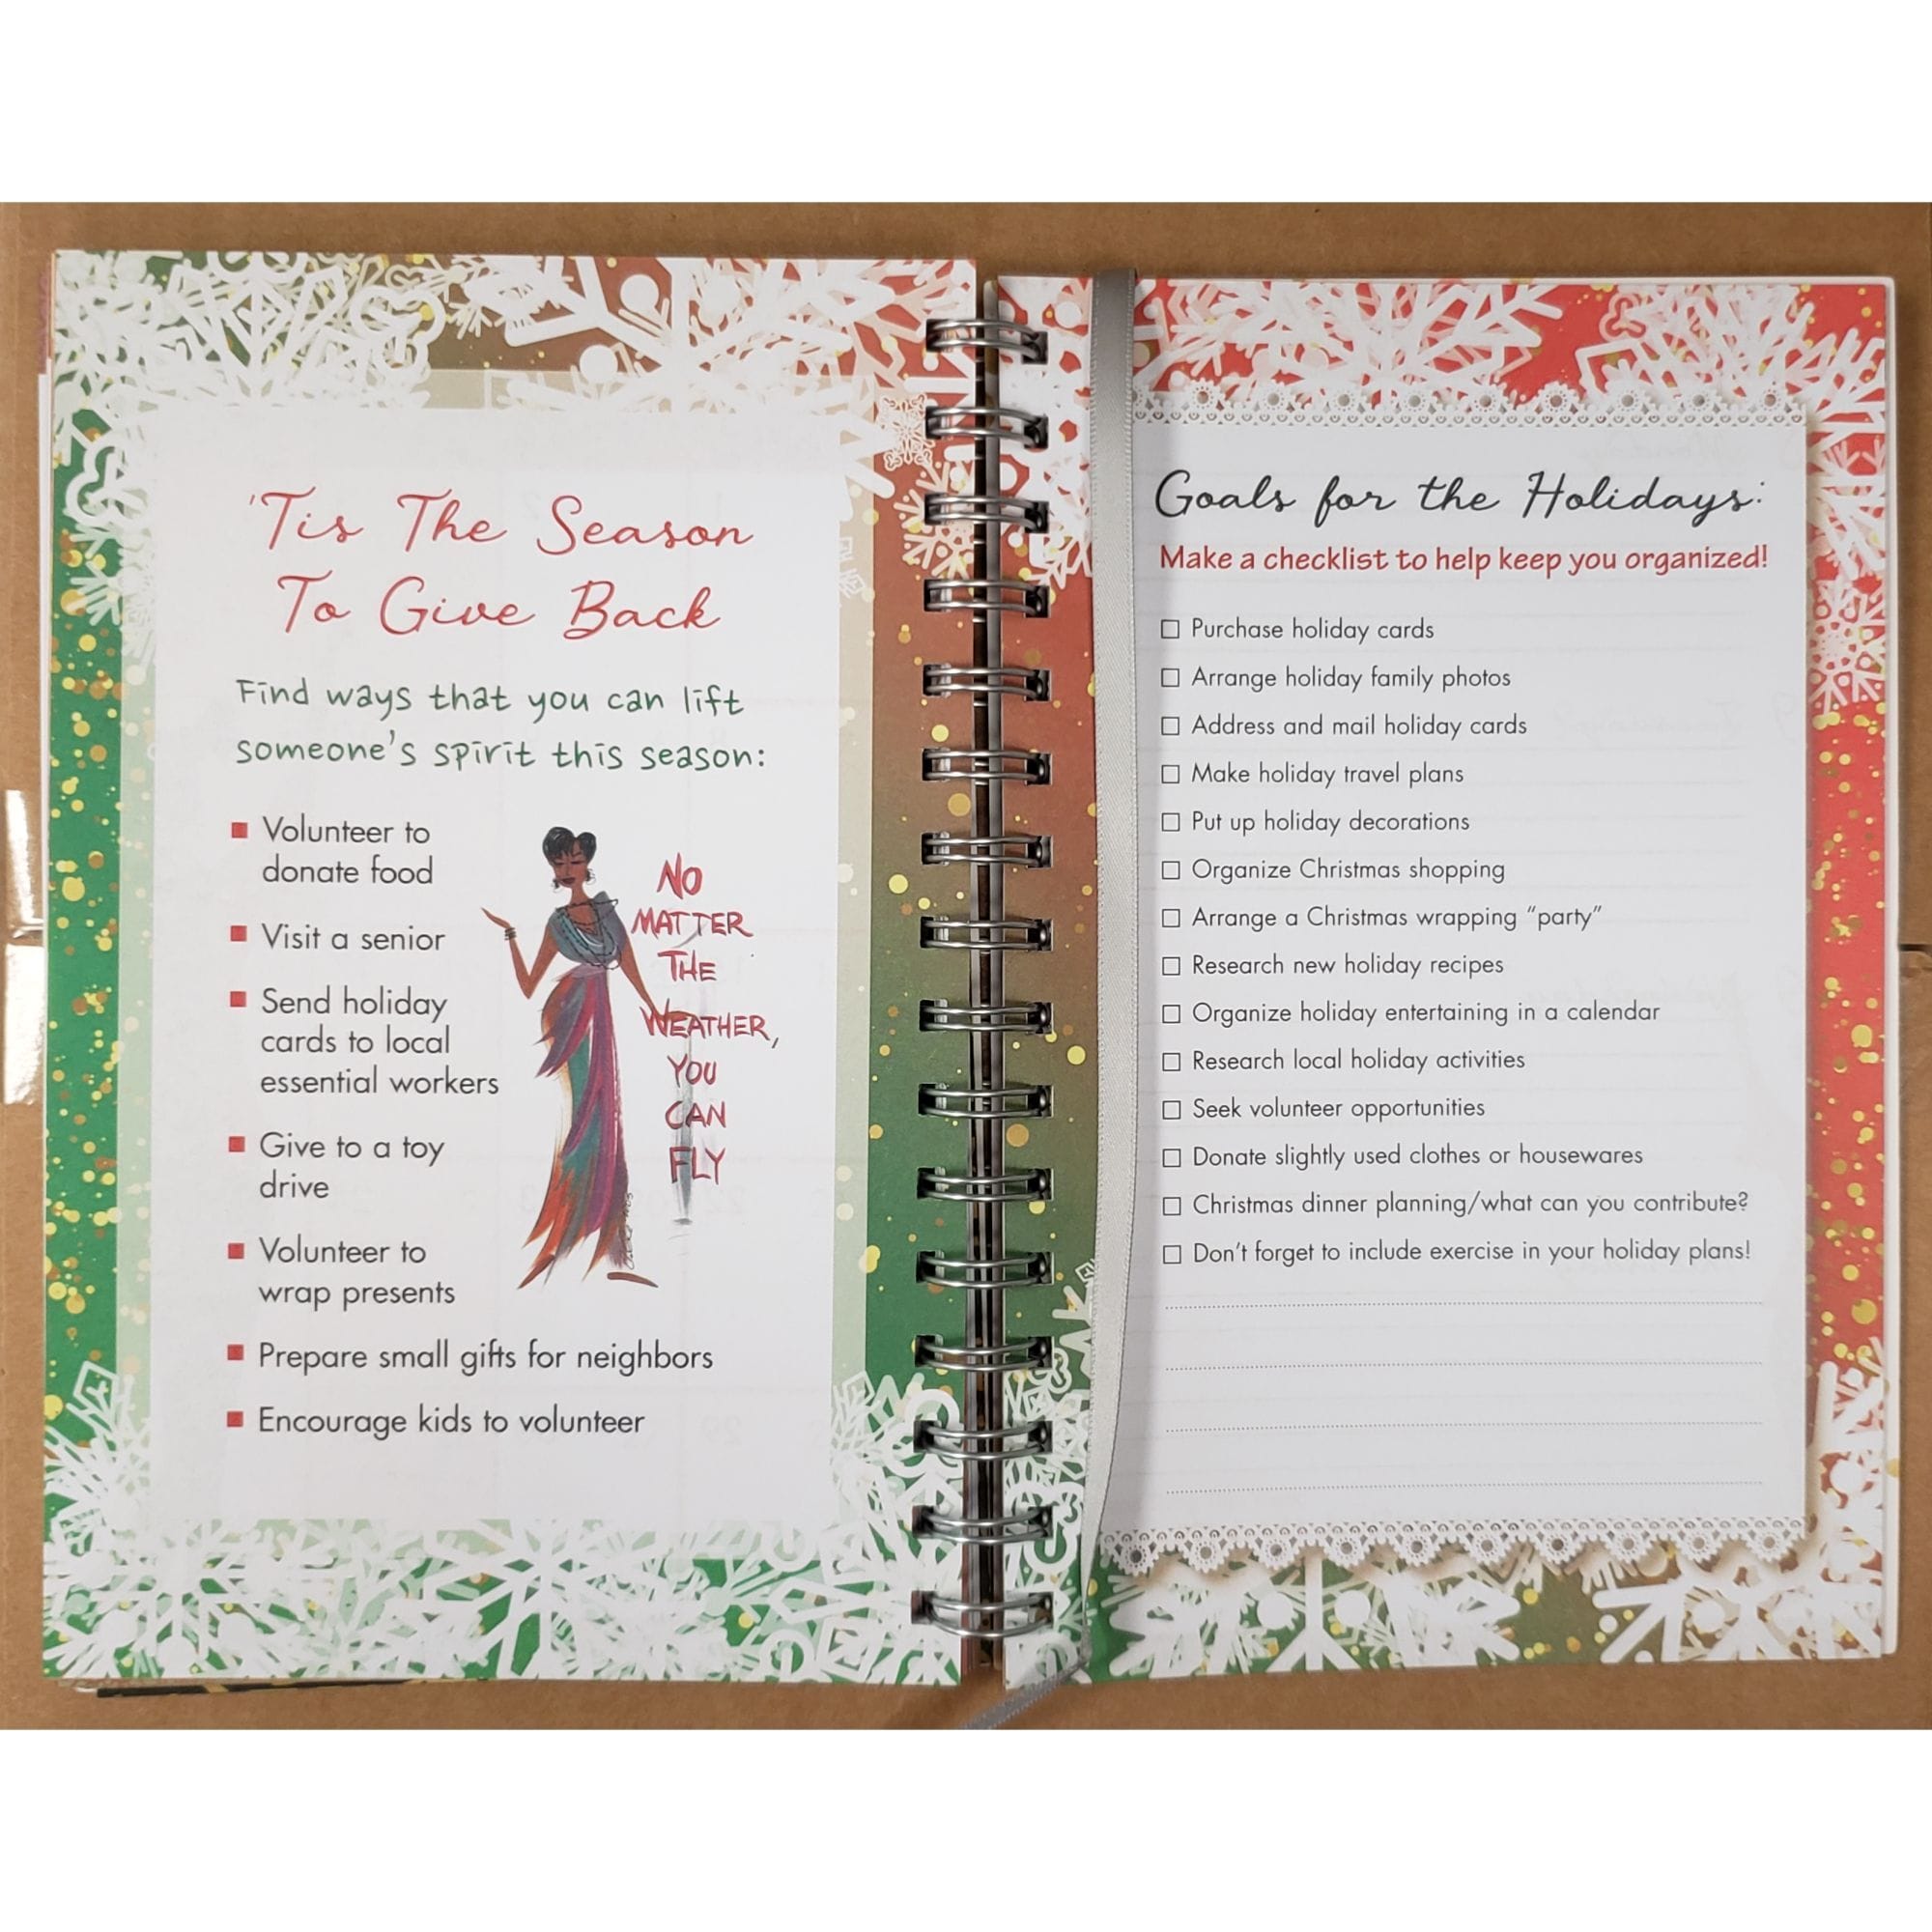 'Tis The Season
To Give Back
Find ways that you can lift
someone's spirit this season:
Volunteer to
donate food
Visit a senior
Send holiday
cards to local
essential workers
Give to a toy
drive
Volunteer to
wrap presents
Prepare small gifts for neighbors
Encourage kids to volunteer
NO
MATTER
THE
WEATHER,
YOU
CAN
FLY
Goals for the Holidays:
Make a checklist to help keep you organized!
Purchase holiday cards
Arrange holiday family photos
Address and mail holiday cards
Make holiday travel plans
Put up holiday decorations
Organize Christmas shopping
Arrange a Christmas wrapping “party”
Research new holiday recipes
Organize holiday entertaining in a calendar
Research local holiday activities
Seek volunteer opportunities
Donate slightly used clothes or housewares
Christmas dinner planning/what can you contribute?
Don't forget to include exercise in your holiday plans!